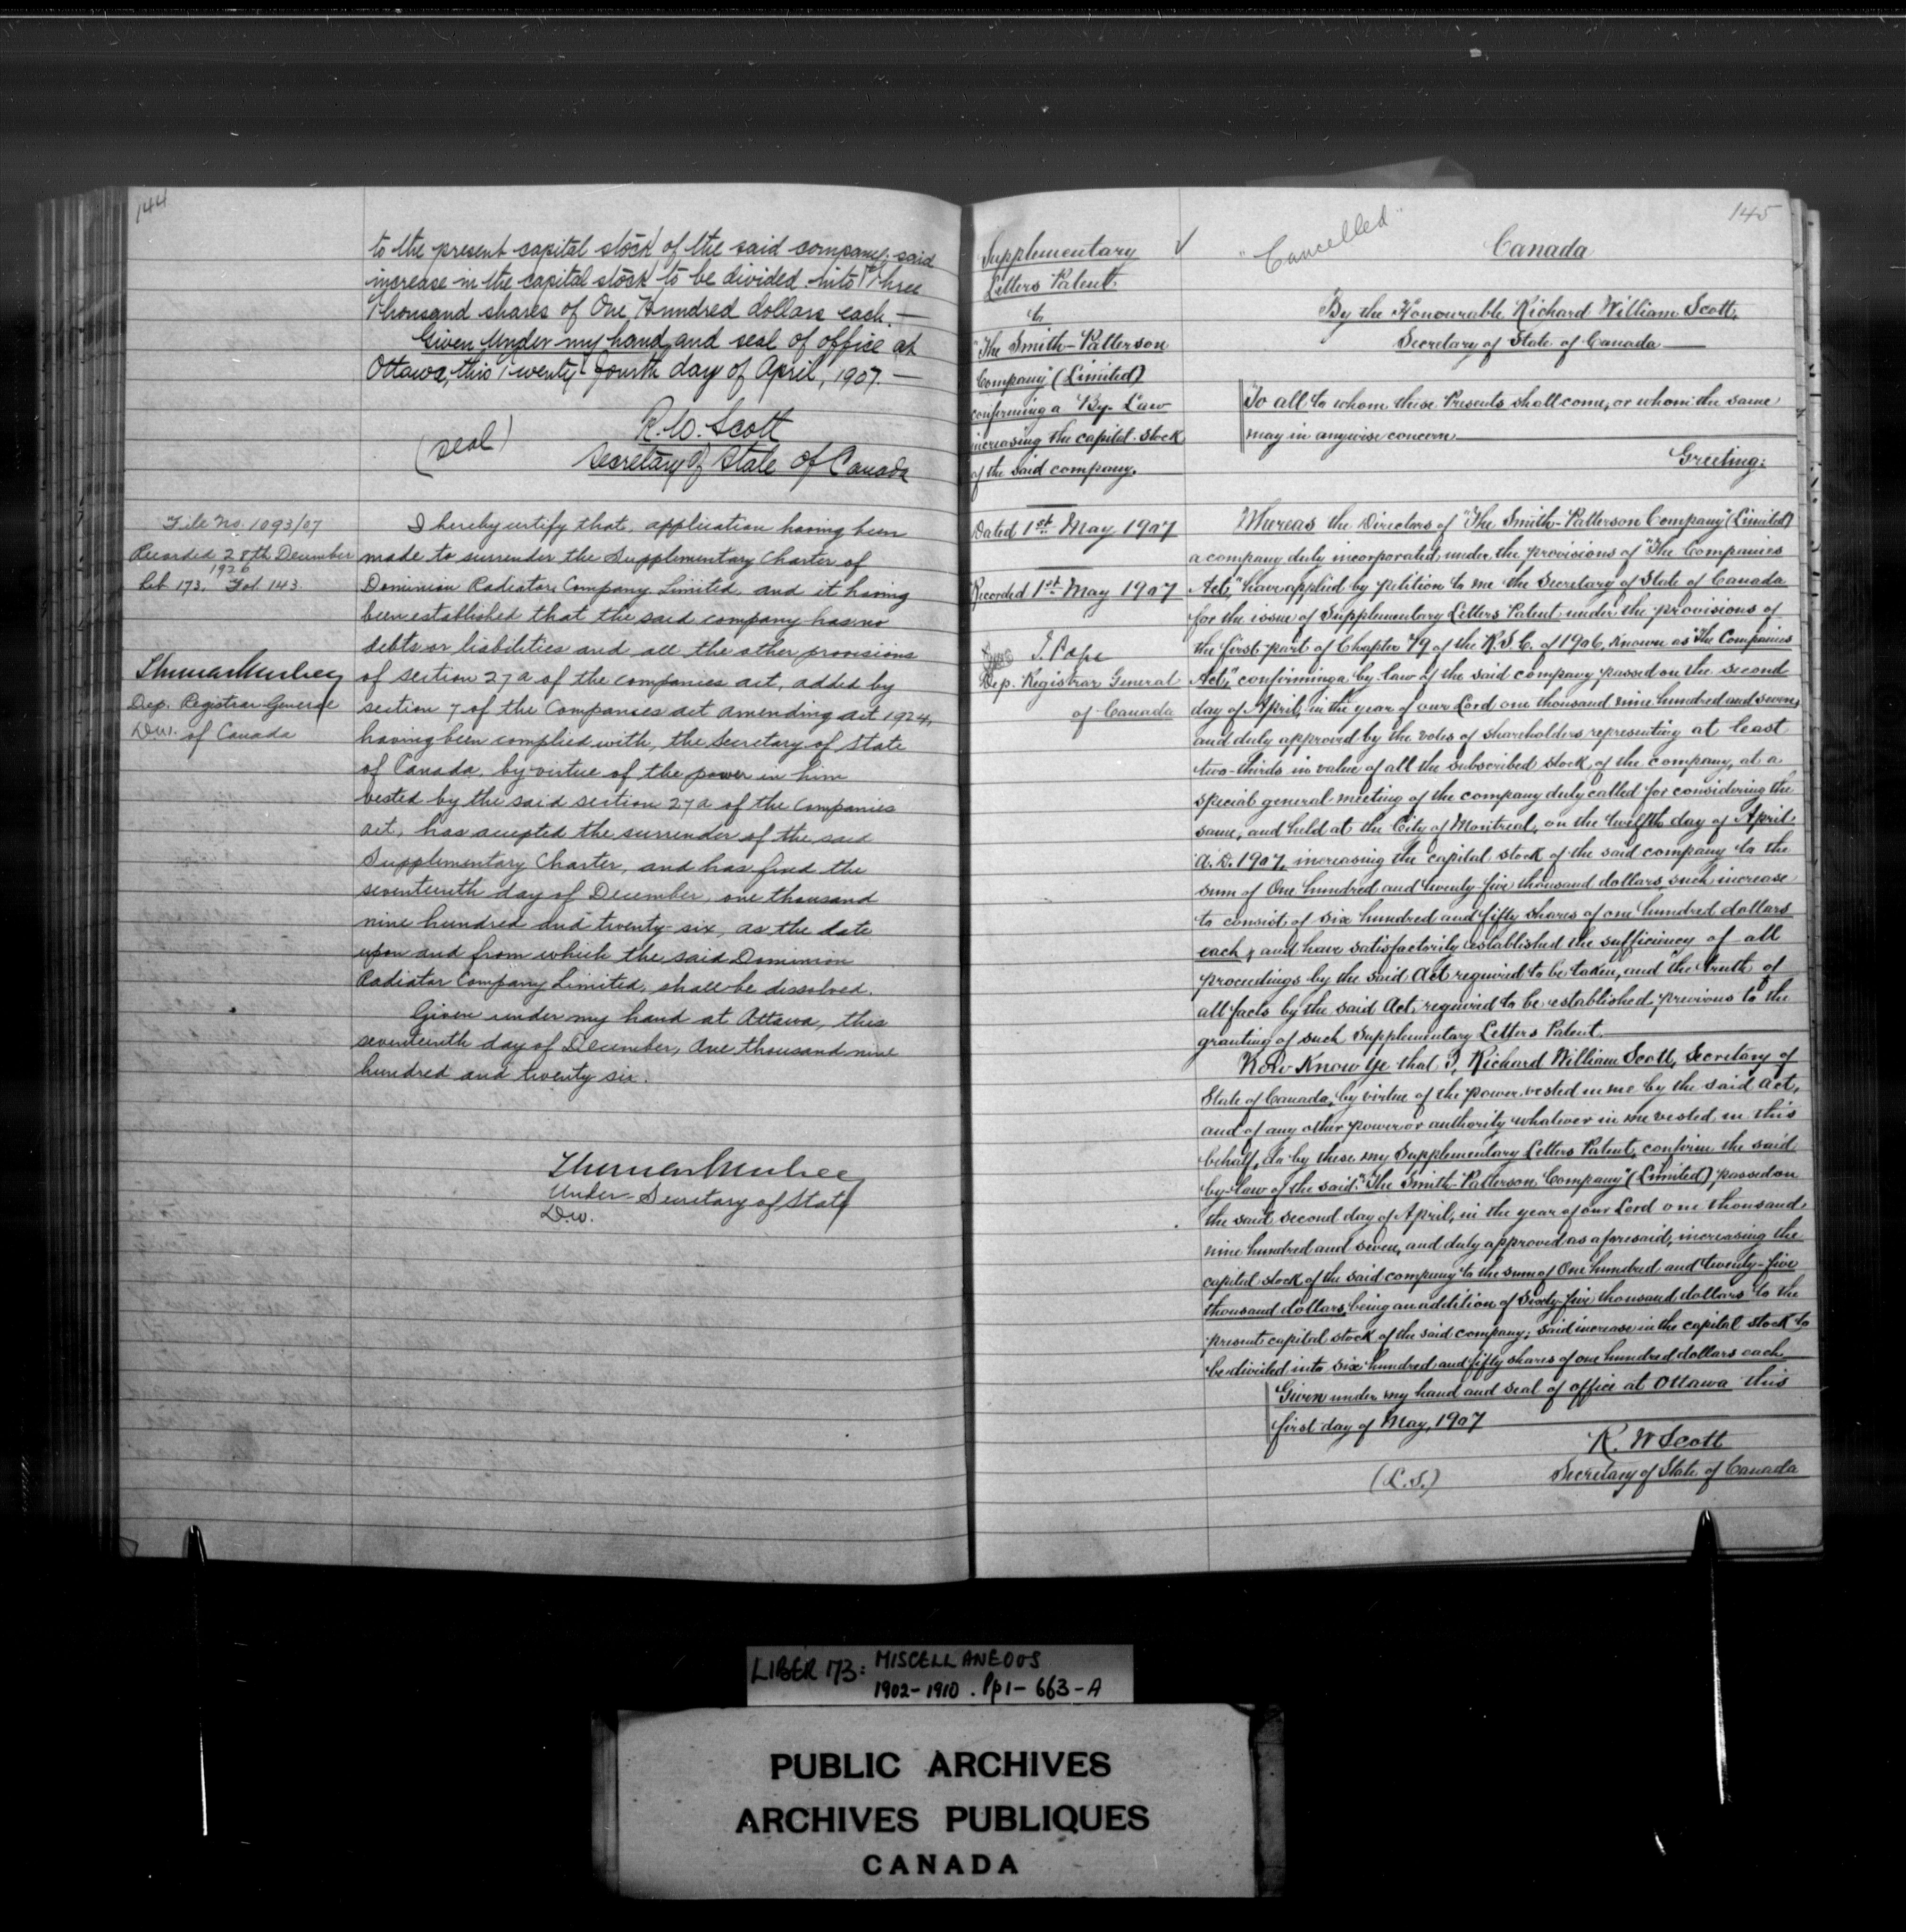 144
to the present capital stock of the said company; said
increase in the capital stock to be divided into Three
Thousand shares of One Hundred dollars each. —
Given under my hand and seal of office at
Ottawa, this Twenty-Fourth day of April, 1907. —
R. W. Scott
(seal)
Secretary of State of Canada
File No. 1093/07
Recorded 28th December
1926
Lib 173. Fol. 143
Dep. Registrar General
of Canada
I hereby certify that, application having been
made to surrender the Supplementary Charter of
Dominion Radiator Company Limited, and it having
been established that the said company has no
debts or liabilities and all the other provisions
of section 27a of the Companies act, added by
section 7 of the Companies act amending act 1924,
having been complied with, the Secretary of State
of Canada, by virtue of the power in him
vested by the said section 27a of the Companies
act, has accepted the surrender of the said
Supplementary Charter, and has fixed the
seventeenth day of December, one thousand
nine hundred and twenty-six, as the date
upon and from which the said Dominion
Radiator Company Limited, shall be dissolved.
Given under my hand at Ottawa, this
seventeenth day of December, One thousand nine
hundred and twenty six.
Under-Secretary of State
D.W.
145
"Cancelled"
Supplementary
Letters Patent
to
"The Smith-Patterson
Company" (Limited)
confirming a By-Law
increasing the capital stock
of the said company.
Dated 1st May 1907
Recorded 1st May 1907
J. Pope
Dep. Registrar General
of Canada
Canada
By the Honourable Richard William Scott,
Secretary of State of Canada
To all to whom these Presents shall come, or whom the same
may in anywise concern
Greeting:
Whereas the Directors of "The Smith-Patterson Company" (Limited)
a company duly incorporated under the provisions of "The Companies
Act," have applied by petition to me the Secretary of State of Canada
for the issue of Supplementary Letters Patent under the provisions of
the first part of Chapter 79 of the R.S.C. of 1906, known as "The Companies
Act," confirming a by-law of the said company passed on the second
day of April, in the year of our Lord one thousand nine hundred and seven,
and duly approved by the votes of shareholders representing at least
two-thirds in value of all the subscribed stock of the company, at a
special general meeting of the company duly called for considering the
same, and held at the City of Montreal, on the twelfth day of April,
A.D. 1907, increasing the capital stock of the said company to the
sum of One hundred and twenty-five thousand dollars, such increase
to consist of six hundred and fifty shares of one hundred dollars
each, and have satisfactorily established the sufficiency of all
proceedings by the said Act required to be taken, and the truth of
all facts by the said Act required to be established previous to the
granting of such Supplementary Letters Patent.
Now Know Ye that I, Richard William Scott, Secretary of
State of Canada, by virtue of the power vested in me by the said Act,
and of any other power or authority whatever in me vested in this
behalf, do by these my Supplementary Letters Patent, confirm the said
by-law of the said "The Smith-Patterson Company" (Limited), passed on
the said second day of April, in the year of our Lord one thousand
nine hundred and seven, and duly approved as aforesaid, increasing the
capital stock of the said company to the sum of One hundred and twenty-five
thousand dollars, being an addition of Sixty-five thousand dollars to the
present capital stock of the said company; said increase in the capital stock to
be divided into six hundred and fifty shares of one hundred dollars each
Given under my hand and seal of office at Ottawa this
first day of May, 1907
R. W Scott
(L.S.)
Secretary of State of Canada
LIBER 173: MISCELLANEOUS
1902-1910. Pp 1-663-A
PUBLIC ARCHIVES
ARCHIVES PUBLIQUES
CANADA